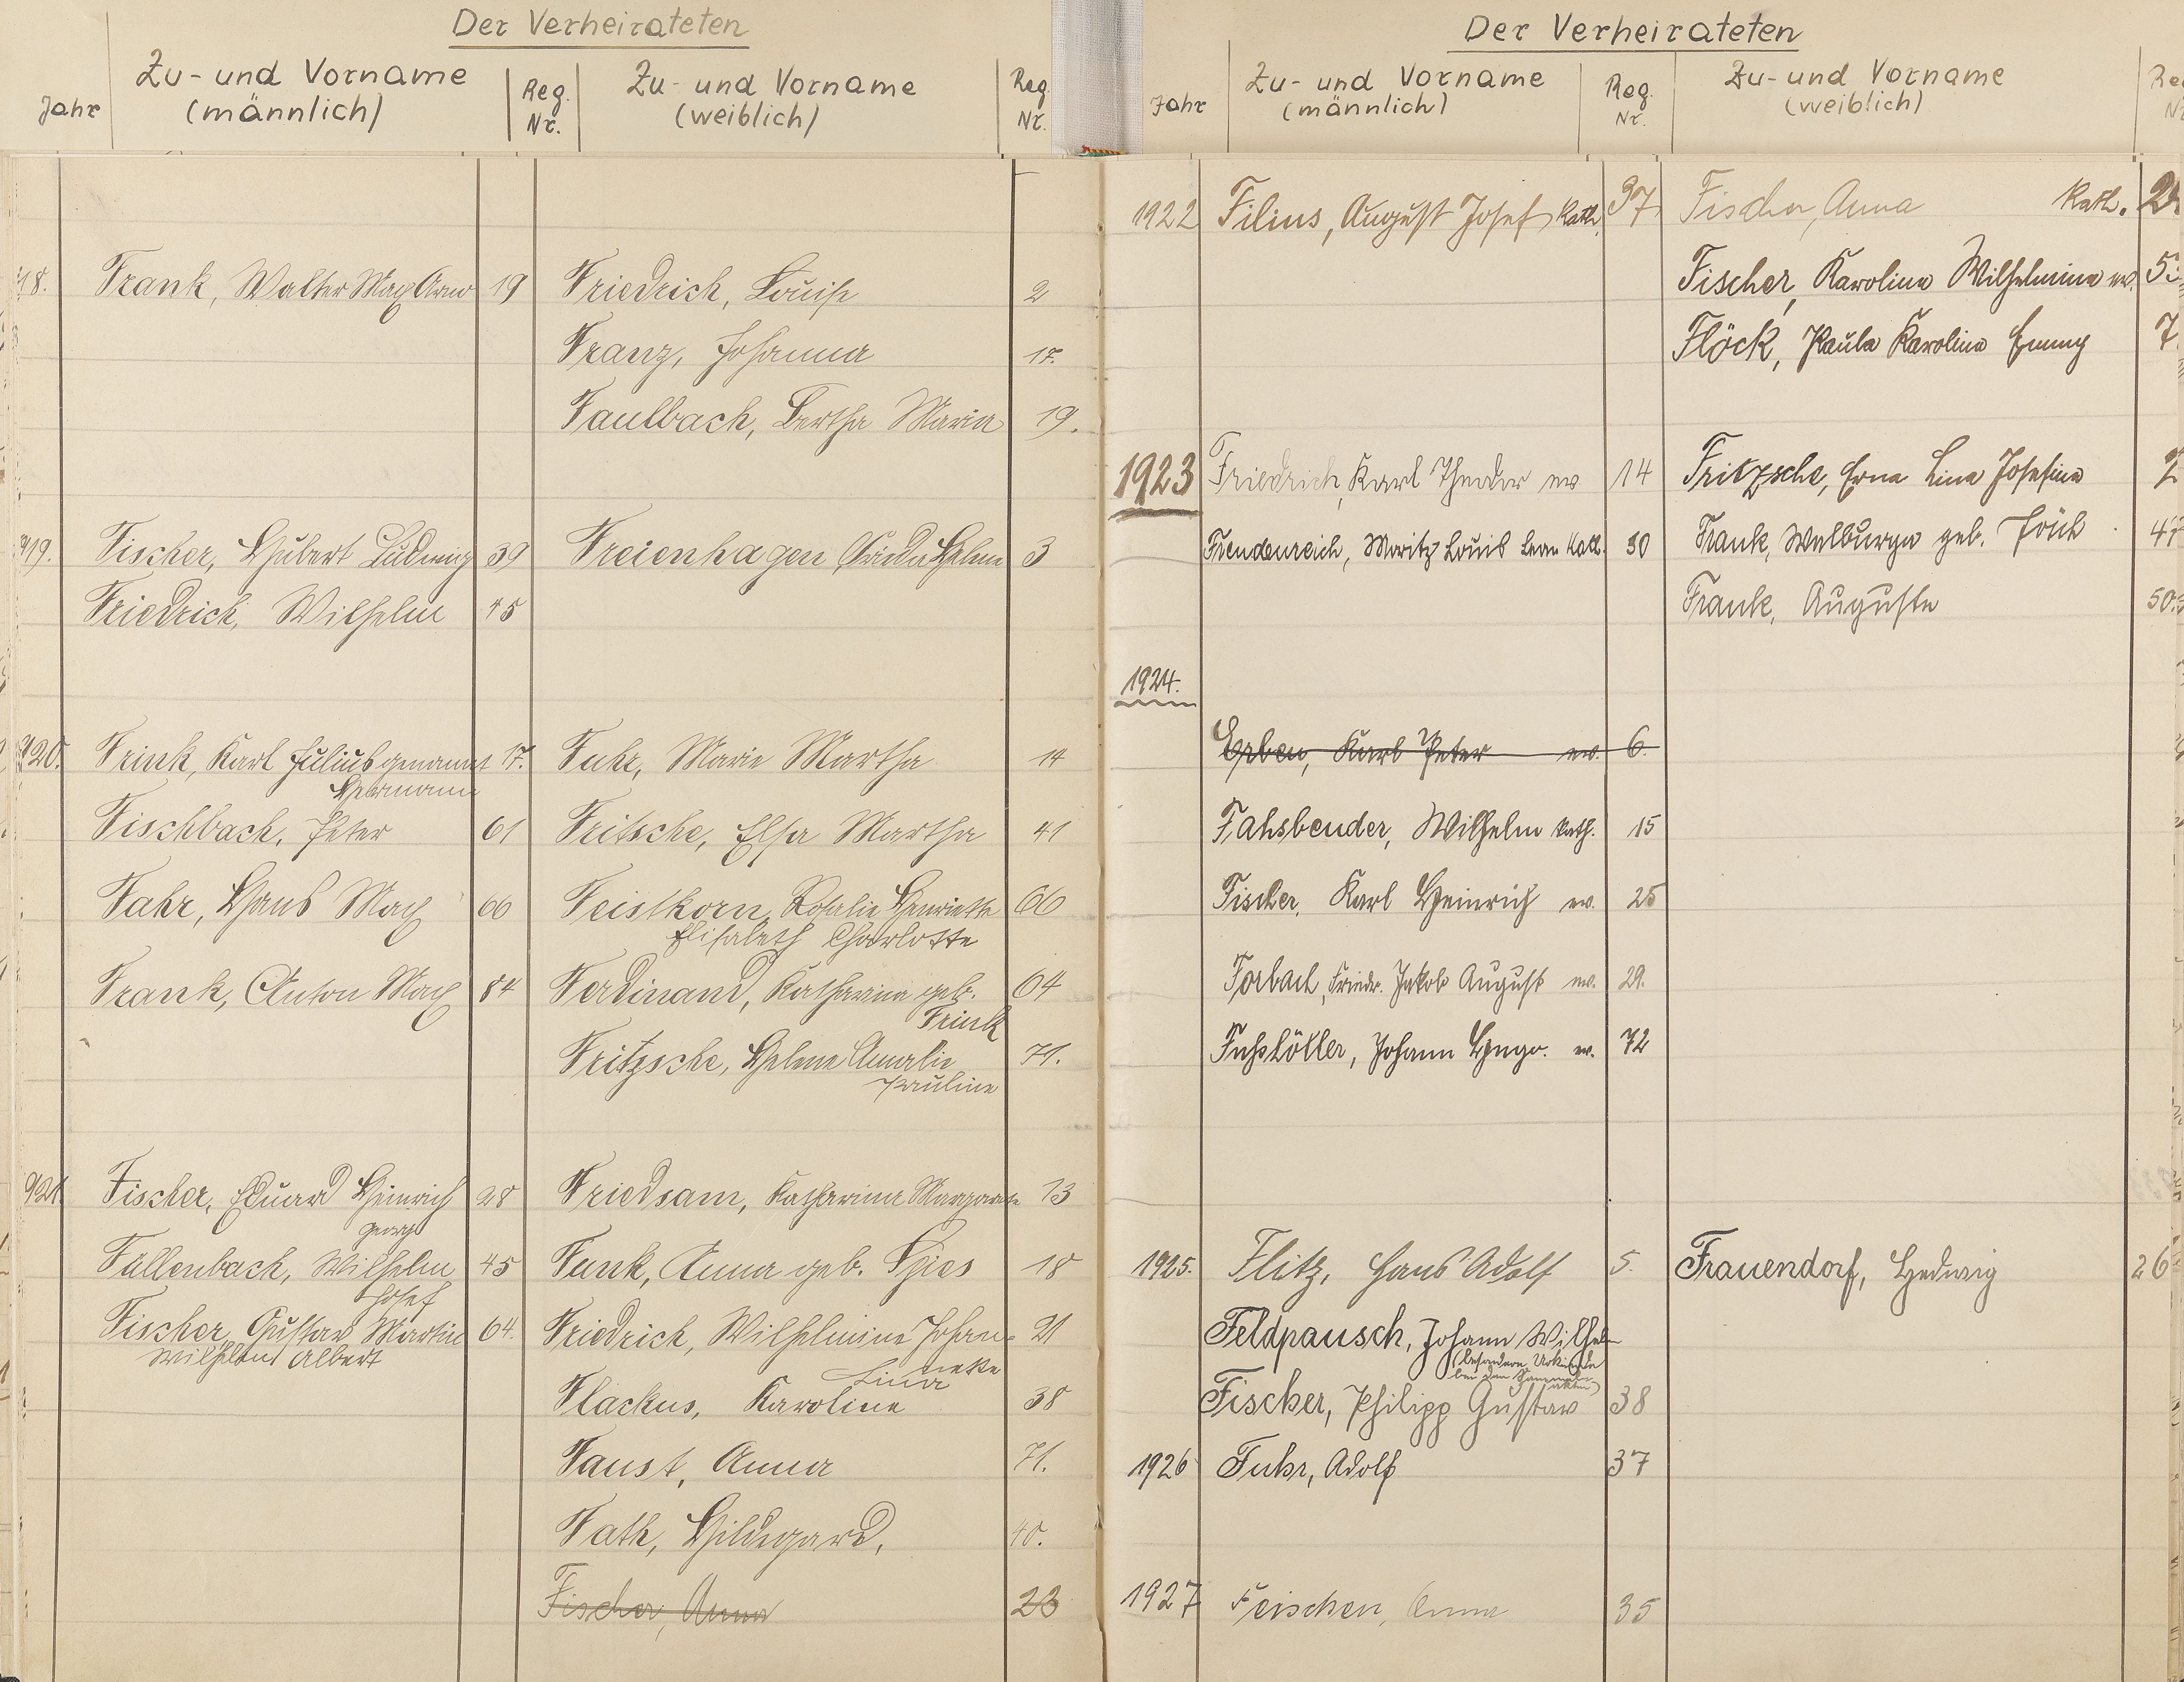 Der Verheirateten
Jahr
Zu- und Vorname (männlich)
Reg. Nr.
Zu- und Vorname (weiblich)
Reg. Nr.
18. Frank, Walter Max Arno 19 Friedrich, Louise 2
Franz, Johanna 17.
Faulbach, Bertha Maria 19.
919. Fischer, Hubert Ludwig 39 Freienhagen, Frieda Helene 3
Friedrich, Wilhelm 45
920. Frink, Karl Julius genannt 17. Fuhr, Marie Martha 14
Hermann
Fischbach, Peter 61 Fritsche, Elsa Martha 41
Fahr, Hans Max 60 Feistkorn, Rosalie Henriette 60
Elisabeth Charlotte
Frank, Anton Max 84 Ferdinand, Katharina geb. 64
Frink
Fritzsche, Helene Amalie 71.
Pauline
921. Fischer, Eduard Heinrich 28 Friedsam, Katharina Margarete 13
Georg
Fallenbach, Wilhelm 45 Funk, Anna geb. Spies 18
Josef
Fischer, Gustav Martin 64. Friedrich, Wilhelmine Johan- 21
Wilhelm Albert
nette
Lina
Flackus, Karoline 38
Faust, Anna 71.
Fath, Hildegard, 40.
Fischer, Anna 23
Der Verheirateten
Jahr
Zu- und Vorname (männlich)
Reg. Nr.
Zu- und Vorname (weiblich)
Reg. Nr.
1922 Filius, August Josef Kath. 37 Fischer, Anna Kath. 2
Fischer, Karoline Wilhelmine ev. 5
Flöck, Paula Karoline Emmy 7
1923 Friedrich, Karl Theodor ev 14 Fritzsche, Erna Lina Josefine 2
Freudenreich, Moritz Louis Leon Kath. 30 Frank, Walburga geb. 47
Frank, Auguste 50.
1924.
Erben, Karl Peter ev. 6.
Fahsbender, Wilhelm kath. 15
Fischer, Karl Heinrich ev. 25
Forbach, Friedr. Jakob August ev. 29.
Fußhöller, Johann Hugo. ev. 72
1925. Flitz, Hans Adolf 5. Frauendorf, Hedwig 26
Feldpausch, Johann Wilhelm
(besondere Urkunde
bei den Sammelakten)
Fischer, Philipp Gustav 38
1926 Fuhr, Adolf 37
1927 Feischen, Anna 35